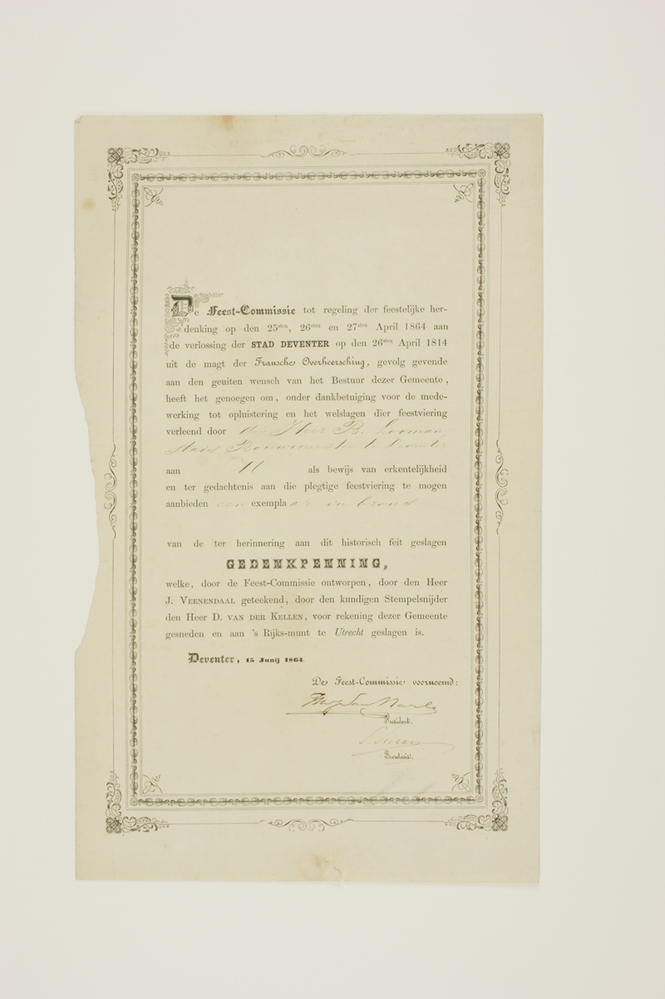 De Feest-Commissie tot regeling der feestelijke her-
denking op den 25sten, 26sten en 27sten April 1864 aan
de verlossing der STAD DEVENTER op den 26sten April 1814
uit de magt der Fransche Overheersching, gevolg gevende
aan den geuiten wensch van het Bestuur dezer Gemeente,
heeft het genoegen om, onder dankbetuiging voor de mede-
werking tot opluistering en het welslagen dier feestviering
verleend door den Heer B. Looman
Stads
aan als bewijs van erkentelijkheid
en ter gedachtenis aan die plegtige feestviering te mogen
aanbieden een exemplaar in brons
van de ter herinnering aan dit historisch feit geslagen
GEDENKPENNING,
welke, door de Feest-Commissie ontworpen, door den Heer
J. VEENENDAAL geteekend, door den kundigen Stempelsnijder
den Heer D. VAN DER KELLEN, voor rekening dezer Gemeente
gesneden en aan 's Rijks-munt te Utrecht geslagen is.
Deventer, 15 Junij 1864.
De Feest-Commissie voornoemd:
President.
Secretaris.